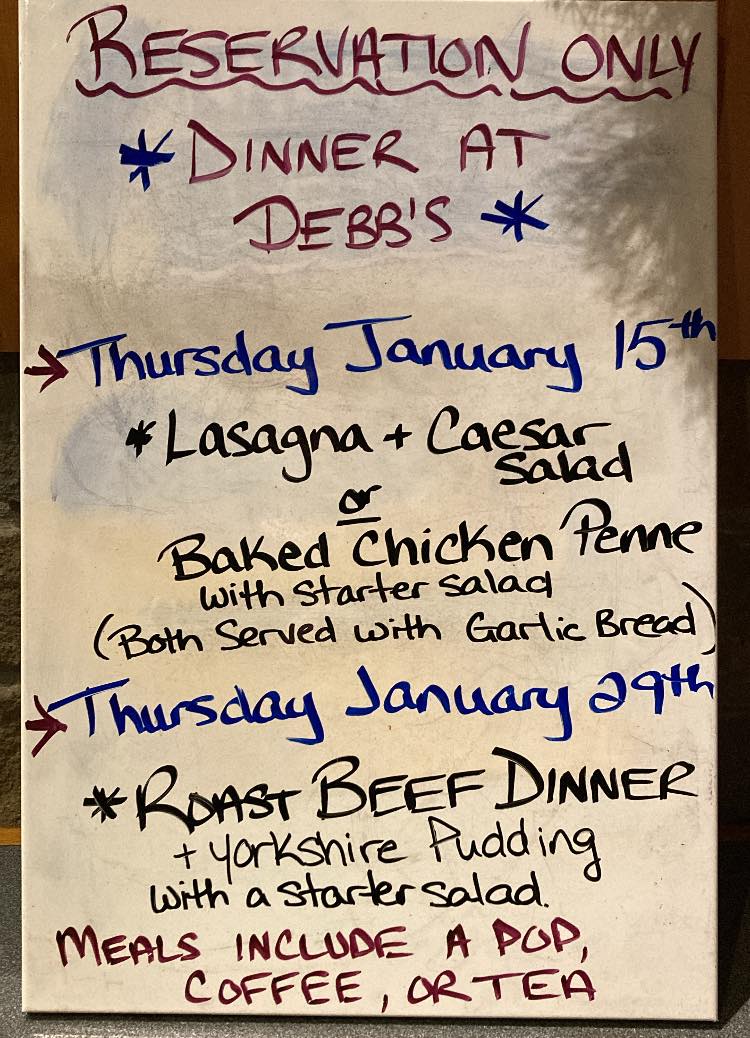 RESERVATION ONLY
* DINNER AT
DEBB'S *
→ Thursday January 15th
* Lasagna + Caesar
Salad
or
Baked Chicken Penne
with starter salad
(Both Served with Garlic Bread)
→ Thursday January 29th
* ROAST BEEF DINNER
+ Yorkshire Pudding
with a starter salad.
MEALS INCLUDE A POP,
COFFEE, OR TEA